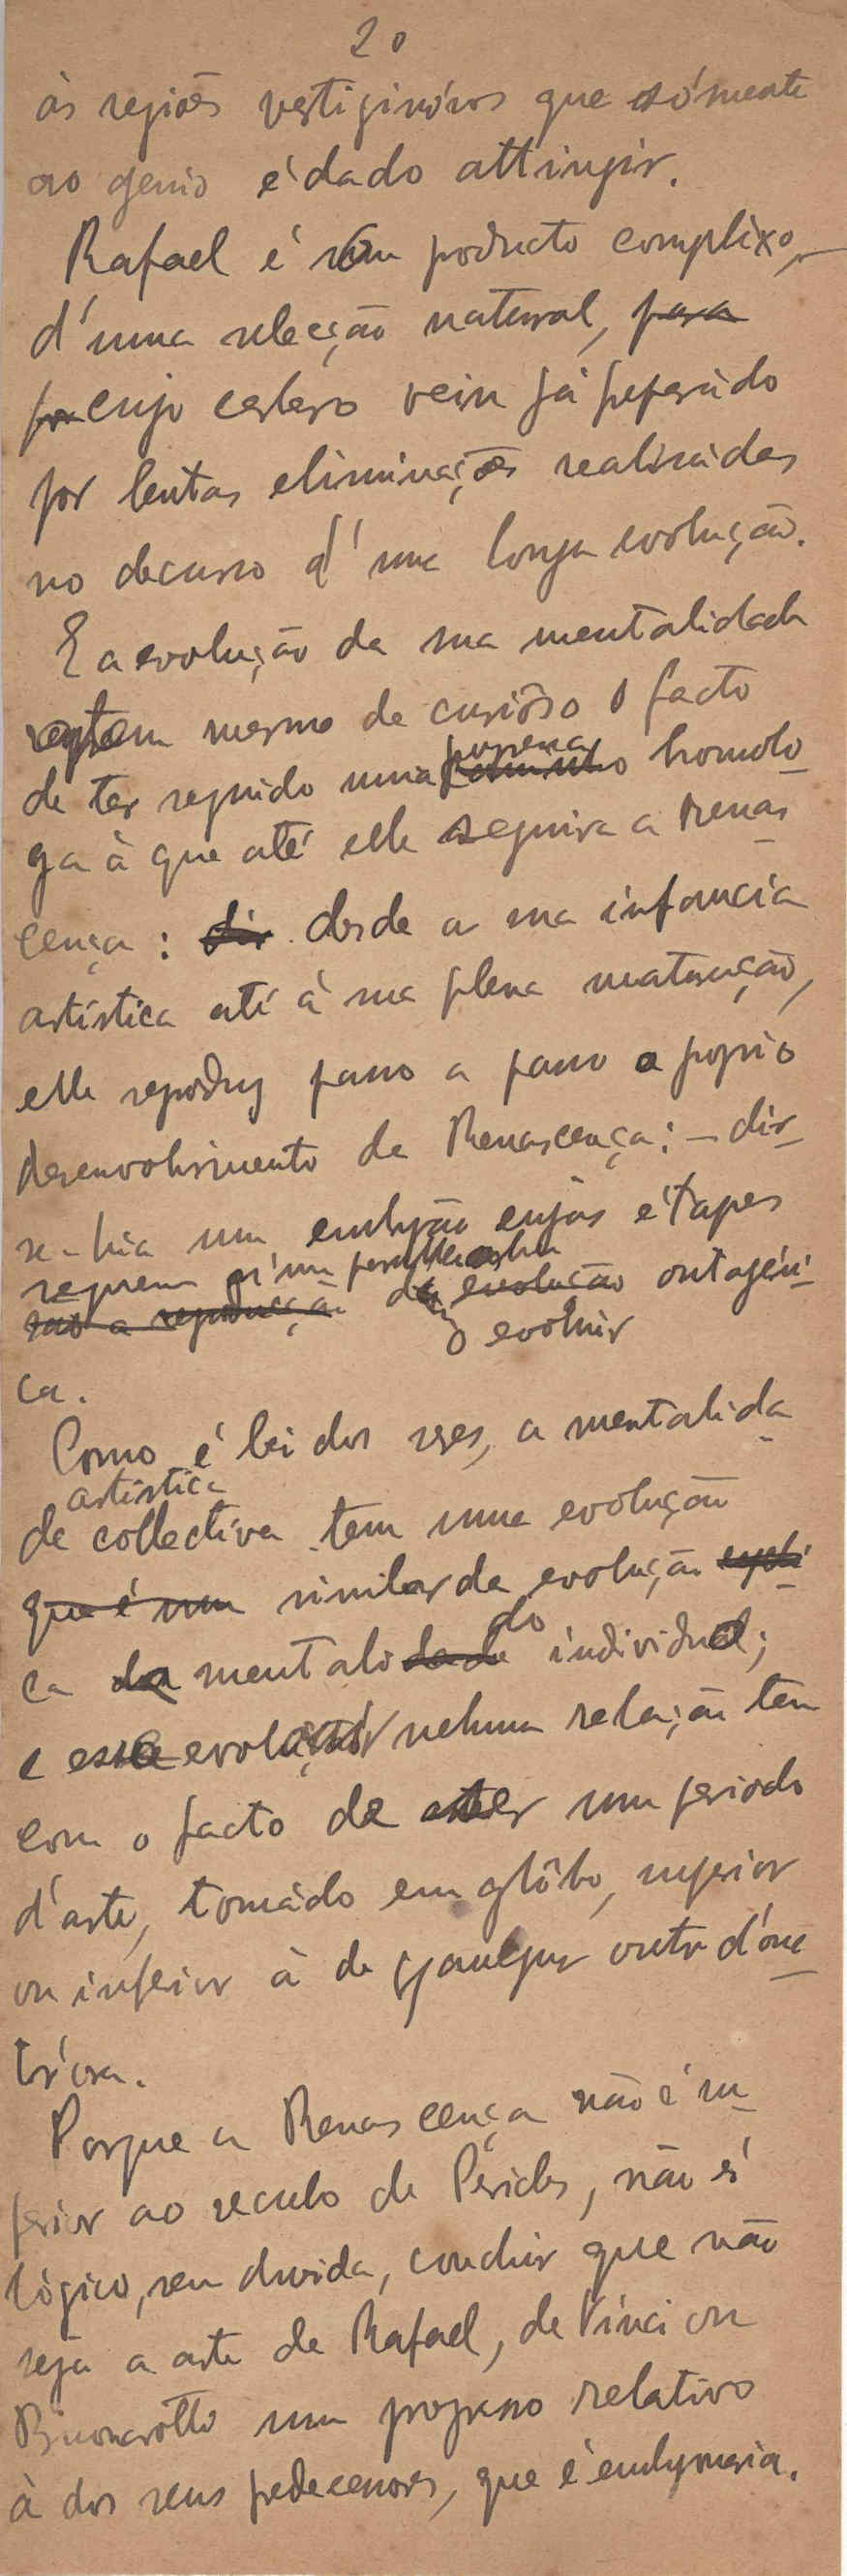 20
ás regiões vertiginósas que sómente
ao genio é dado attingir.
Rafael é um producto complexo,
d'uma selecção natural, para
por cujo cerbero vein já preparádo
por lentas eliminações realisádas
no decurso d'uma longa evolução.
E a evolução da sua mentalidade
tem mesmo de curiôso o facto
de ter seguido uma homolo-
ga à que até elle seguira a Renas-
cença: dir desde a sua infancia
artistica até á sua plena maturação,
elle reproduz passo a passo o proprio
desenvolvimento da Renascença: — dir-
se-hia um embryão cujas étapes
seguem n'um
são a reproducção da evolução ontogéni-
evoluir
ca.
Como é lei dos seres, a mentalida-
artistica
de collectiva tem uma evolução
que é uma similar da evolução
do
ca da mentalidade individual;
e essa evolução nehuma relação tem
com o facto de ser um periodo
d'arte, tomádo em glôbo, superior
ou inferior á de qualquer outr d'ou-
tr'ora.
Porque a Renascença não é in-
ferior ao seculo de Péricles, não é
lógico, sem duvida, concluir que não
seja a arte de Rafael, de Vinci ou
Buonarotto um progresso relativo
á dos seus predecessores, que é embryonaria.